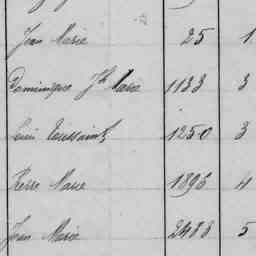 Jean Marie 25 1
Dominique Jh Marie 1133 3
Louis Toussaint 1250 3
Pierre Marie 1896 4
Jean Marie 2488 5